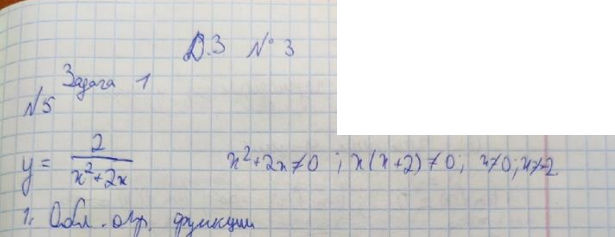 Д.З № 3
Задача 1
№5
y = 2/(x²+2x)    x²+2x≠0 ; x(x+2)≠0, x≠0; x≠-2
1. Обл. опр. функции